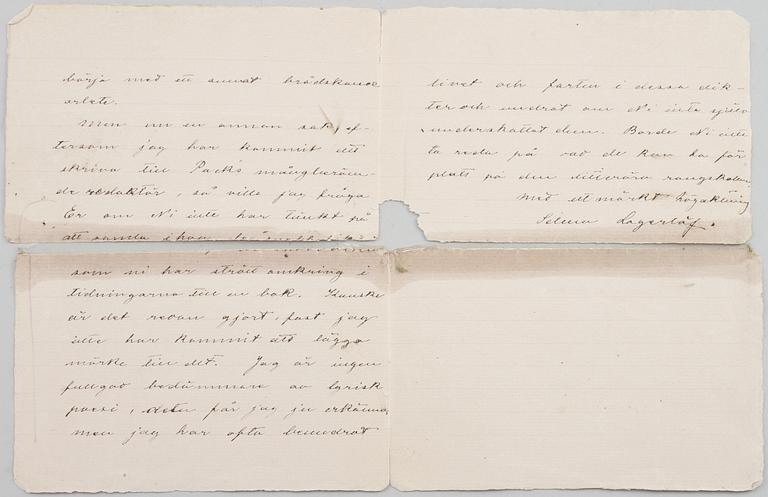 börja med ett annat brådskande
arbete.
Men nu en annan sak, ef-
tersom jag har kommit att
skriva till Pucks mångberöm-
de redaktör, så ville jag fråga
Er om Ni inte har tänkt på
att samla ihop
som ni har strött omkring i
tidningarna till en bok. Kanske
är det redan gjort, fast jag
inte har kommit att lägga
märke till det. Jag är ingen
fullgod bedömmare av lyrisk
poesi, det får jag ju erkänna,
men jag har ofta beundrat
livet och farten i dessa dik-
ter och undrat om Ni inte själv
underskattat dem. Borde Ni inte
ta reda på vad de kan ha för
plats på den litterära rangskalan.
Med utmärkt högaktning
Selma Lagerlöf.